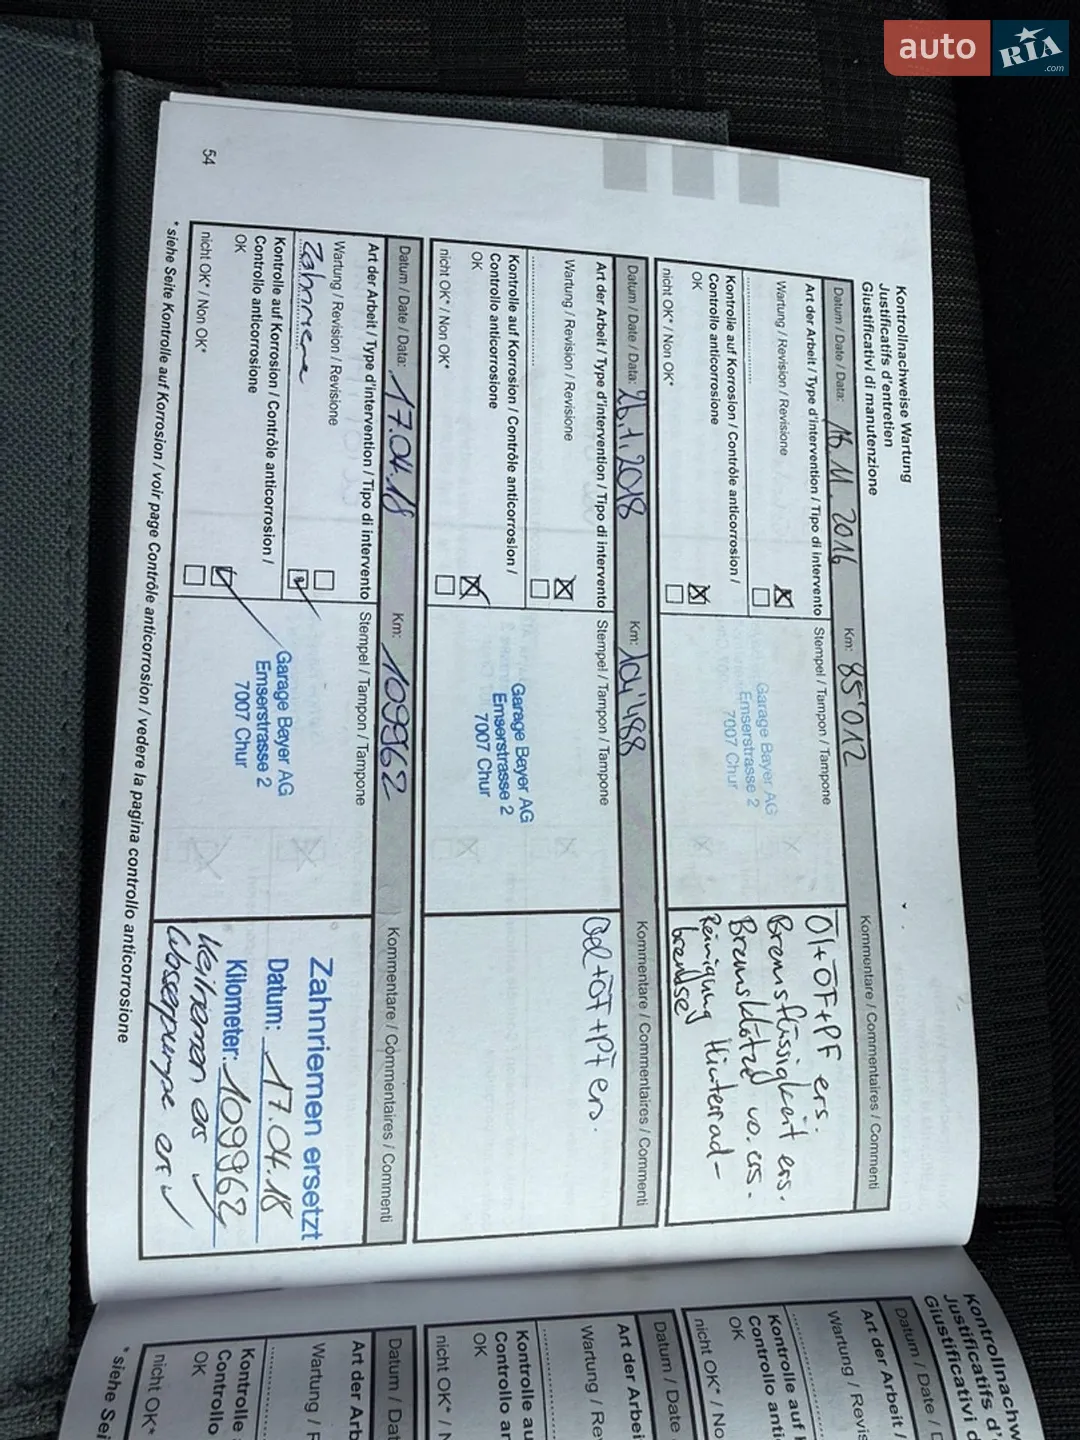 auto
RIA
.com
Kontrollnachweise Wartung
Justificatifs d'entretien
Giustificativi di manutenzione
Datum / Date / Data: 16.11.2016 Km: 85'012 Kommentare / Commentaires / Commenti
Art der Arbeit / Type d'intervention / Tipo di intervento
Stempel / Tampon / Tampone
Wartung / Revision / Revisione
Kontrolle auf Korrosion / Contrôle anticorrosion /
Controllo anticorrosione
OK
nicht OK* / Non OK*
Garage Bayer AG
Emserstrasse 2
7007 Chur
Öl+ÖF+PF ers.
Bremsflüssigkeit ers.
Bremsklötze vo. ers.
Reinigung Hinterrad-
bremsen
Datum / Date / Data: 26.1.2018 Km: 104'488 Kommentare / Commentaires / Commenti
Art der Arbeit / Type d'intervention / Tipo di intervento
Stempel / Tampon / Tampone
Wartung / Revision / Revisione
Kontrolle auf Korrosion / Contrôle anticorrosion /
Controllo anticorrosione
OK
nicht OK* / Non OK*
Garage Bayer AG
Emserstrasse 2
7007 Chur
Oel+ÖF+PF ers.
Datum / Date / Data: 17.04.18 Km: 109962 Kommentare / Commentaires / Commenti
Art der Arbeit / Type d'intervention / Tipo di intervento
Stempel / Tampon / Tampone
Wartung / Revision / Revisione
Kontrolle auf Korrosion / Contrôle anticorrosion /
Controllo anticorrosione
OK
nicht OK* / Non OK*
Garage Bayer AG
Emserstrasse 2
7007 Chur
Zahnriemen ersetzt
Datum: 17.04.18
Kilometer: 109962
Keilriemen ers
Wasserpumpe ers
* siehe Seite Kontrolle auf Korrosion / voir page Contrôle anticorrosion / vedere la pagina controllo anticorrosione
54
Kontrollnachw
Justificatifs d'
Giustificativi d
Datum / Date / D
Art der Arbeit /
Wartung / Revis
Kontrolle auf K
Controllo anti
OK
nicht OK* / No
Datum / Date
Art der Arbei
Wartung / Re
Kontrolle au
Controllo an
OK
nicht OK* / N
Datum / Dat
Art der Arb
Wartung / F
Kontrolle
Controllo
OK
nicht OK*
* siehe Sei